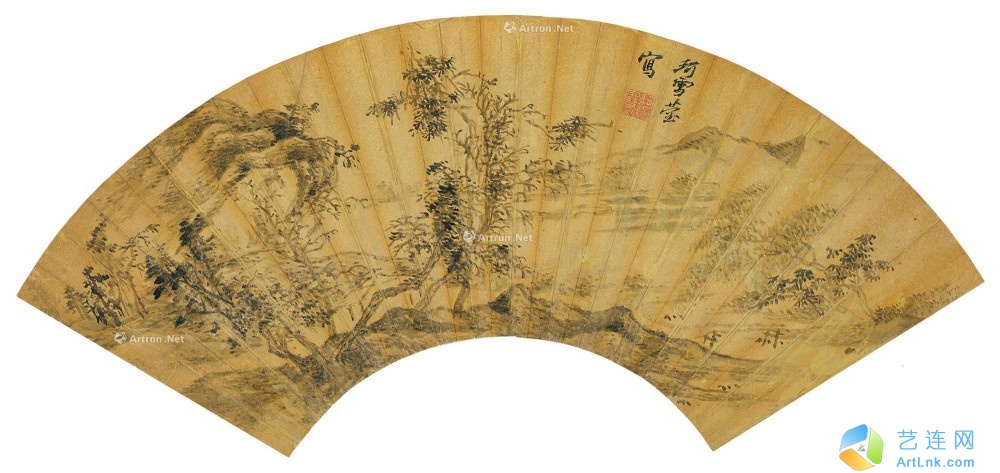 Artron.Net
珂雪莹
寫
Artron.Net
Artron.Net
艺连网
ArtLnk.com